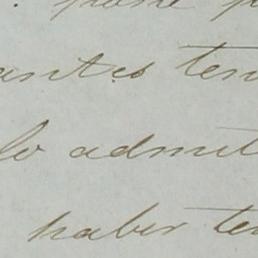 antes ten
lo admit
haber te